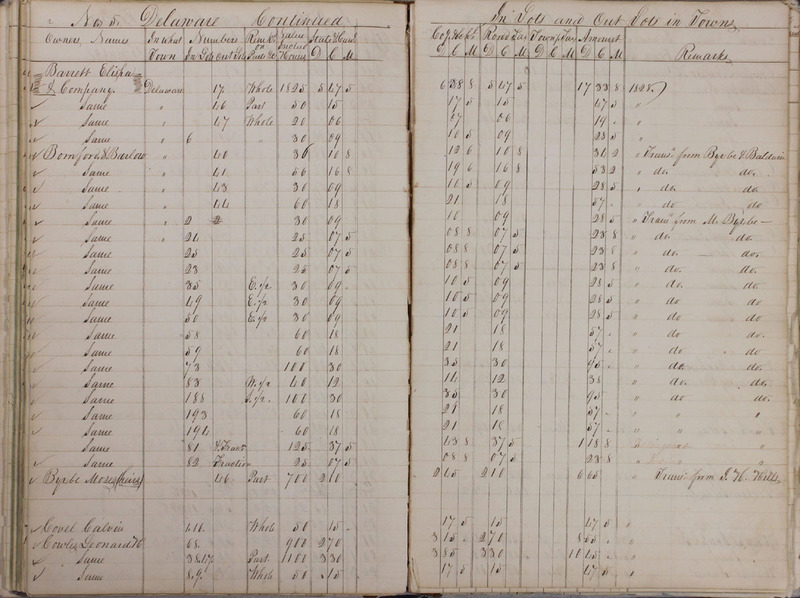 No 5. Delaware Continued In Lots and Out Lots in Towns
Owners Names In what Town Numbers In Lots Out Lots Value State Co & School Road Tax Town Tax Amount Remarks
D C M D C M D C M D C M
Barrett Elisha
& Company Delaware 17 Whole 1825 5 47 5 6 38 8 5 47 5 17 33 8 1828
Same " 46 Part 50 15 17 5 15 47 5 "
Same " 47 Whole 20 06 07 06 19 "
Same " 6 " 30 09 10 5 09 28 5 "
Bomford & Barlow " 40 36 10 8 12 6 10 8 34 2 " Trans. from Byxbe & Baldwin
Same " 41 56 16 8 19 6 16 8 53 2 " do. do.
Same " 43 30 09 10 5 09 28 5 " do do
Same " 44 60 18 21 18 57 " do do
Same " 2 30 09 10 09 28 5 " Trans. from M. Byxbe
Same " 24 25 07 5 08 8 07 5 23 8 " do. do.
Same 25 25 07 5 08 8 07 5 23 8 " do. do.
Same 23 25 07 5 08 8 07 5 23 8 " do. do.
Same 35 E. 1/2 30 09 10 5 09 28 5 " do. do.
Same 49 E. 1/2 30 09 10 5 09 28 5 " do do
Same 50 E. 1/2 30 09 10 5 09 28 5 " do do
Same 58 60 18 21 18 57 " do do.
Same 59 60 18 21 18 57 " do do
Same 73 100 30 35 30 95 " do. do.
Same 83 W. 1/2 40 12 14 12 38 " do. do.
Same 188 S. 1/2 100 30 35 30 95 " do do.
Same 193 60 18 21 18 57 " " "
Same 194 60 18 21 18 57 " " "
Same 81 & Fract 125 37 5 43 8 37 5 1 18 8 "
Same 82 Fraction 25 07 5 08 8 07 5 23 8 " "
Byxbe Moses (heirs) 46 Part 700 2 10 2 45 2 10 6 65 " Trans. from J. H. Hills
Covel Calvin 44 Whole 50 15 17 5 15 47 5 "
Cowles Leonard H 68 900 2 70 3 15 2 70 8 55 "
Same Part 1100 3 30 3 85 3 30 10 45 "
Same 89 Whole 50 15 17 5 15 47 5 "